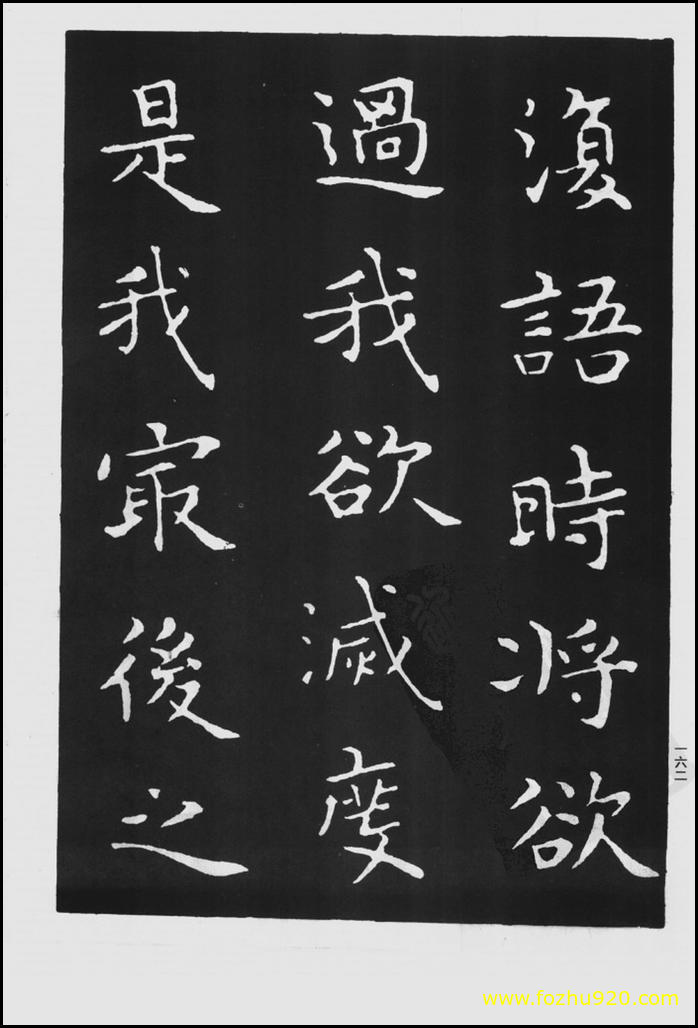 復語時將欲
過我欲滅度
是我最後之
一六二
www.fozhu920.com